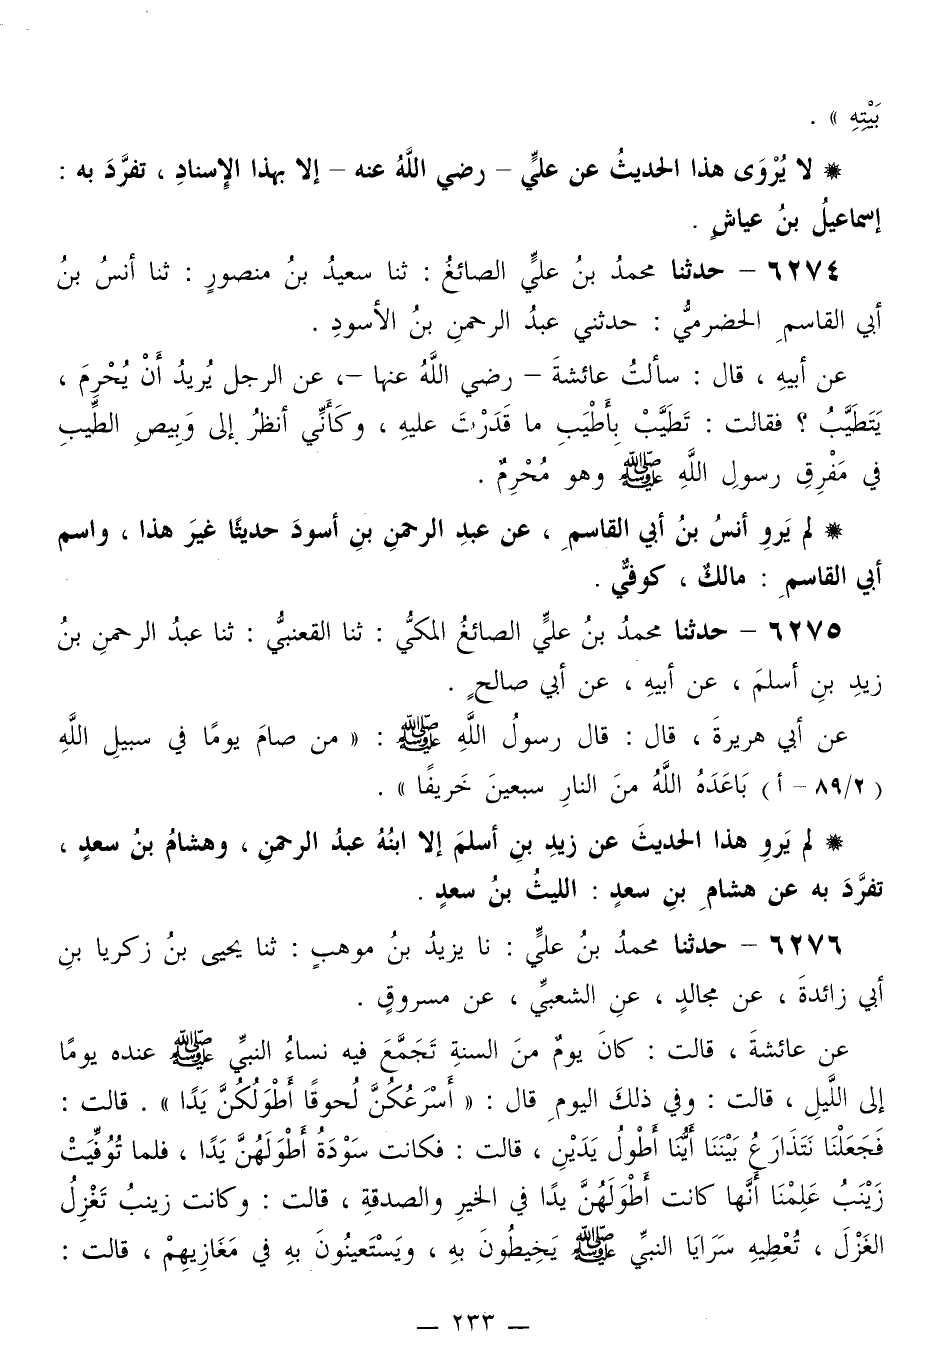 بَيْتِهِ » .
* لا يُرْوَى هذا الحديثُ عن عليٍّ – رضي اللَّهُ عنه – إلا بهذا الإِسنادِ ، تفرَّدَ به :
إسماعيلُ بنُ عياشٍ .
٦٢٧٤ – حدثنا محمدُ بنُ عليٍّ الصائغُ : ثنا سعيدُ بنُ منصورٍ : ثنا أنسُ بنُ
أبي القاسمِ الحضرميُّ : حدثني عبدُ الرحمنِ بنُ الأسودِ .
عن أبيهِ ، قال : سألتُ عائشةَ – رضي اللَّهُ عنها –، عن الرجل يُريدُ أَنْ يُحْرِمَ ،
يَتَطَيَّبُ ؟ فقالت : تَطَيَّبْ بِأَطْيَبِ ما قَدَرْتَ عليهِ ، وكَأَنِّي أنظرُ إلى وَبِيصِ الطِّيبِ
في مَفْرِقِ رسولِ اللَّهِ ﷺ وهو مُحْرِمٌ .
* لم يَروِ أنسُ بنُ أبي القاسمِ ، عن عبدِ الرحمنِ بنِ أسودَ حديثًا غيرَ هذا ، واسم
أبي القاسمِ : مالكٌ ، كوفيٌّ .
٦٢٧٥ – حدثنا محمدُ بنُ عليٍّ الصائغُ المكيُّ : ثنا القعنبيُّ : ثنا عبدُ الرحمنِ بنُ
زيدِ بنِ أسلمَ ، عن أبيهِ ، عن أبي صالحٍ .
عن أبي هريرةَ ، قال : قال رسولُ اللَّهِ ﷺ : « من صامَ يومًا في سبيلِ اللَّهِ
( ٨٩/٢ – أ ) بَاعَدَهُ اللَّهُ منَ النارِ سبعينَ خَريفًا » .
* لم يَروِ هذا الحديثَ عن زيدِ بنِ أسلمَ إلا ابنُهُ عبدُ الرحمنِ ، وهشامُ بنُ سعدٍ ،
تفرَّدَ به عن هشامِ بنِ سعدٍ : الليثُ بنُ سعدٍ .
٦٢٧٦ – حدثنا محمدُ بنُ عليٍّ : نا يزيدُ بنُ موهبٍ : ثنا يحيى بنُ زكريا بنِ
أبي زائدةَ ، عن مجالدٍ ، عنِ الشعبيِّ ، عن مسروقٍ .
عن عائشةَ ، قالت : كانَ يومٌ منَ السنةِ تَجَمَّعَ فيه نساءُ النبيِّ ﷺ عنده يومًا
إلى اللَّيلِ ، قالت : وفي ذلكَ اليومِ قال : « أَسْرَعُكُنَّ لُحوقًا أَطْوَلُكُنَّ يَدًا » . قالت :
فَجَعَلْنَا نَتَذَارَعُ بَيْنَنَا أَيُّنَا أَطْولُ يَدَيْنِ ، قالت : فكانت سَوْدَةُ أَطْوَلَهُنَّ يَدًا ، فلما تُوُفِّيَتْ
زَيْنَبُ عَلِمْنَا أَنَّها كانت أَطْوَلَهُنَّ يدًا في الخيرِ والصدقةِ ، قالت : وكانت زينبُ تَغْزِلُ
الغَزْلَ ، تُعْطِيهِ سَرَايَا النبيِّ ﷺ يَخِيطُونَ بهِ ، ويَسْتَعينُونَ بهِ في مَغَازِيهِمْ ، قالت :
– ٢٣٣ –